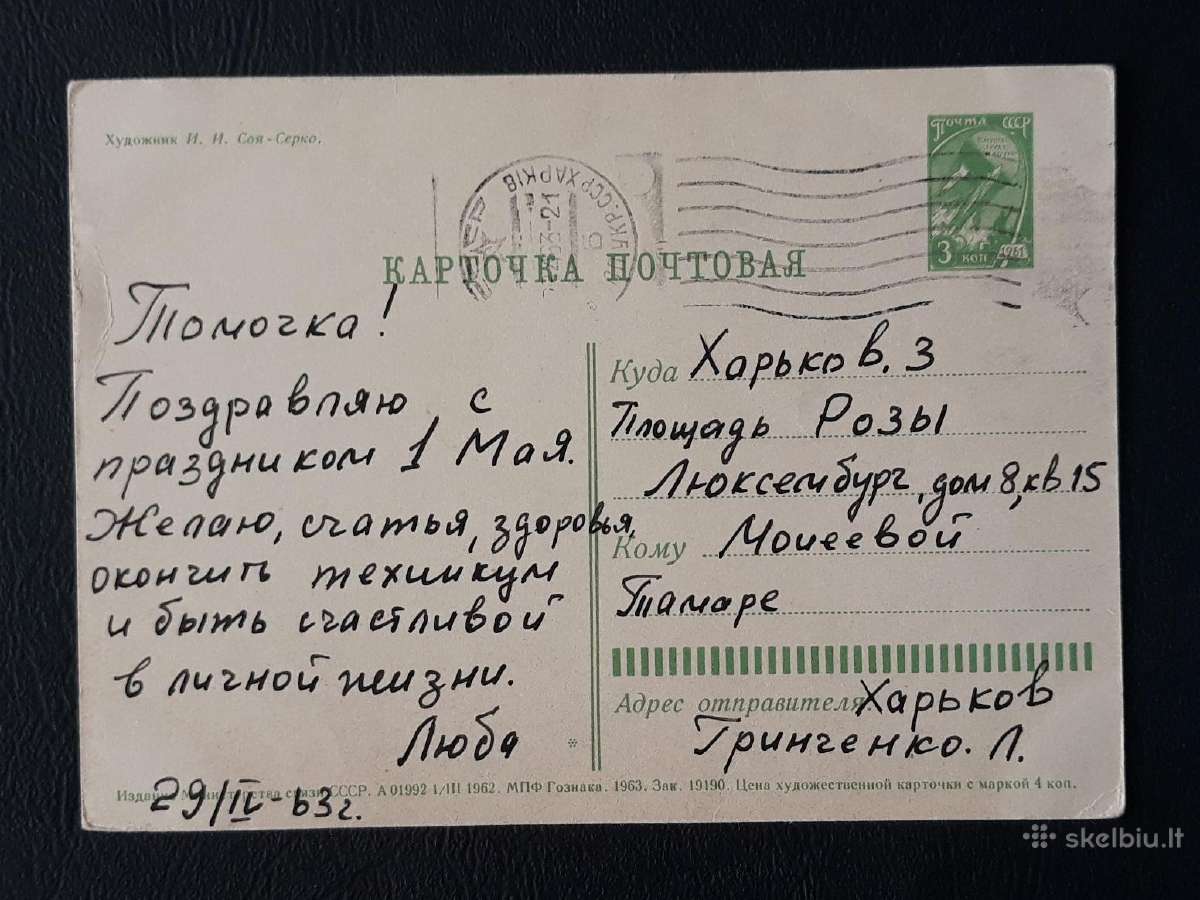 Художник И. И. Соя-Серко.
Почта СССР
3 коп 1961
УКР.ССР ХАРКІВ
КАРТОЧКА ПОЧТОВАЯ
Томочка!
Поздравляю, с
праздником 1 Мая.
Желаю, счатья, здоровья,
окончить техникум
и быть счастливой
в личной жизни.
Люба
29/IV-63г.
Куда Харьков. 3
Площадь Розы
Люксембург, дом 8, кв 15
Кому Моисеевой
Тамаре
Адрес отправителя Харьков
Гринченко. Л.
Издание Министерства связи СССР. А 01992 1/III 1962. МПФ Гознака. 1963. Зак. 19190. Цена художественной карточки с маркой 4 коп.
skelbiu.lt